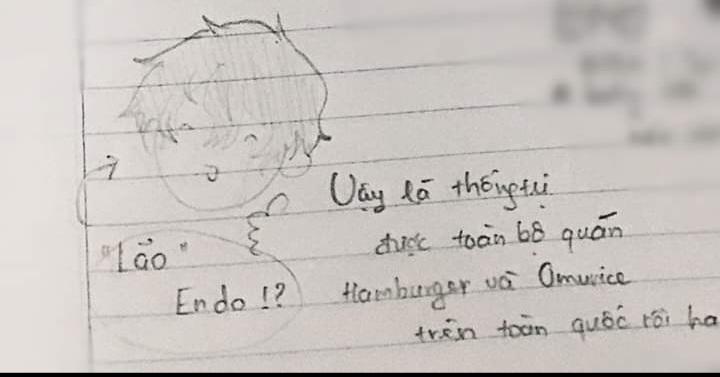 "Lão"
Endo!?
Vậy là thống trị
được toàn bộ quán
Hamburger và Omurice
trên toàn quốc rồi ha